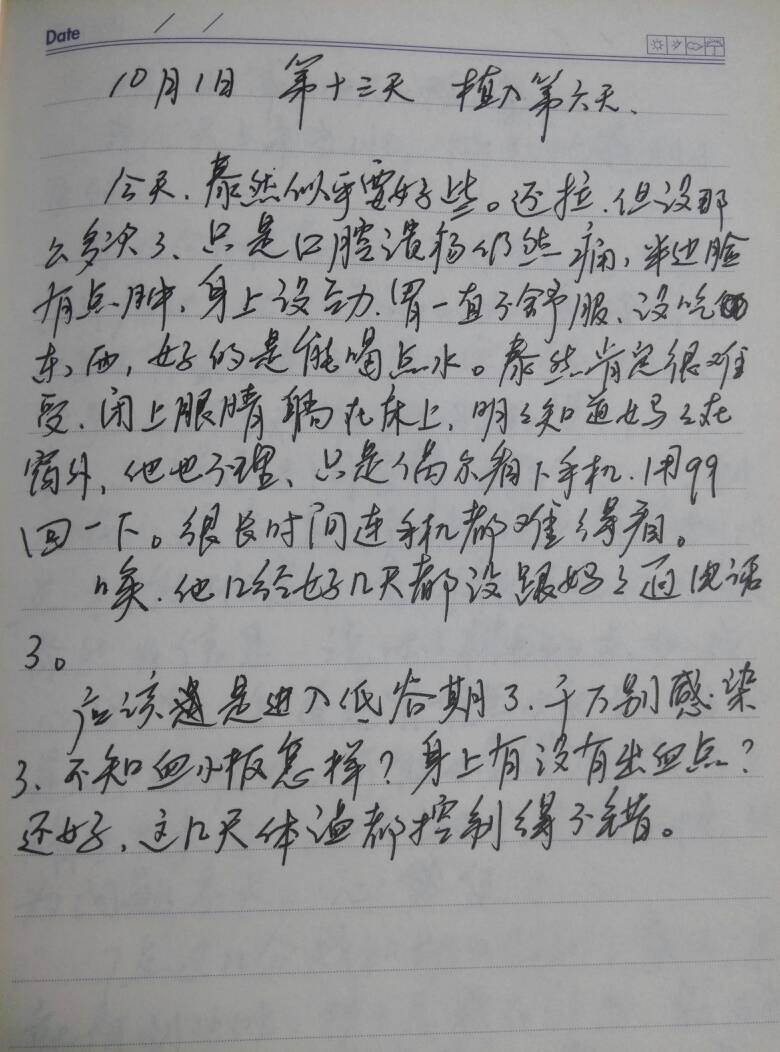 Date / /
10月1日 第十三天 植入第六天、
今天、泰然似乎要好些。还拉、但没那
么多次了、只是口腔溃疡仍然痛，半边脸
有点肿，身上没劲，胃一直不舒服、没吃
东西，好的是能喝点水。泰然肯定很难
受、闭上眼睛躺在床上，明明知道妈妈在
窗外，他也不理、只是偶尔看下手机、用QQ
回一下。很长时间连手机都难得看。
唉、他已经好几天都没跟妈妈通电话
了。
应该是进入低谷期了、千万别感染
了、不知血小板怎样？身上有没有出血点？
还好，这几天体温都控制得不错。